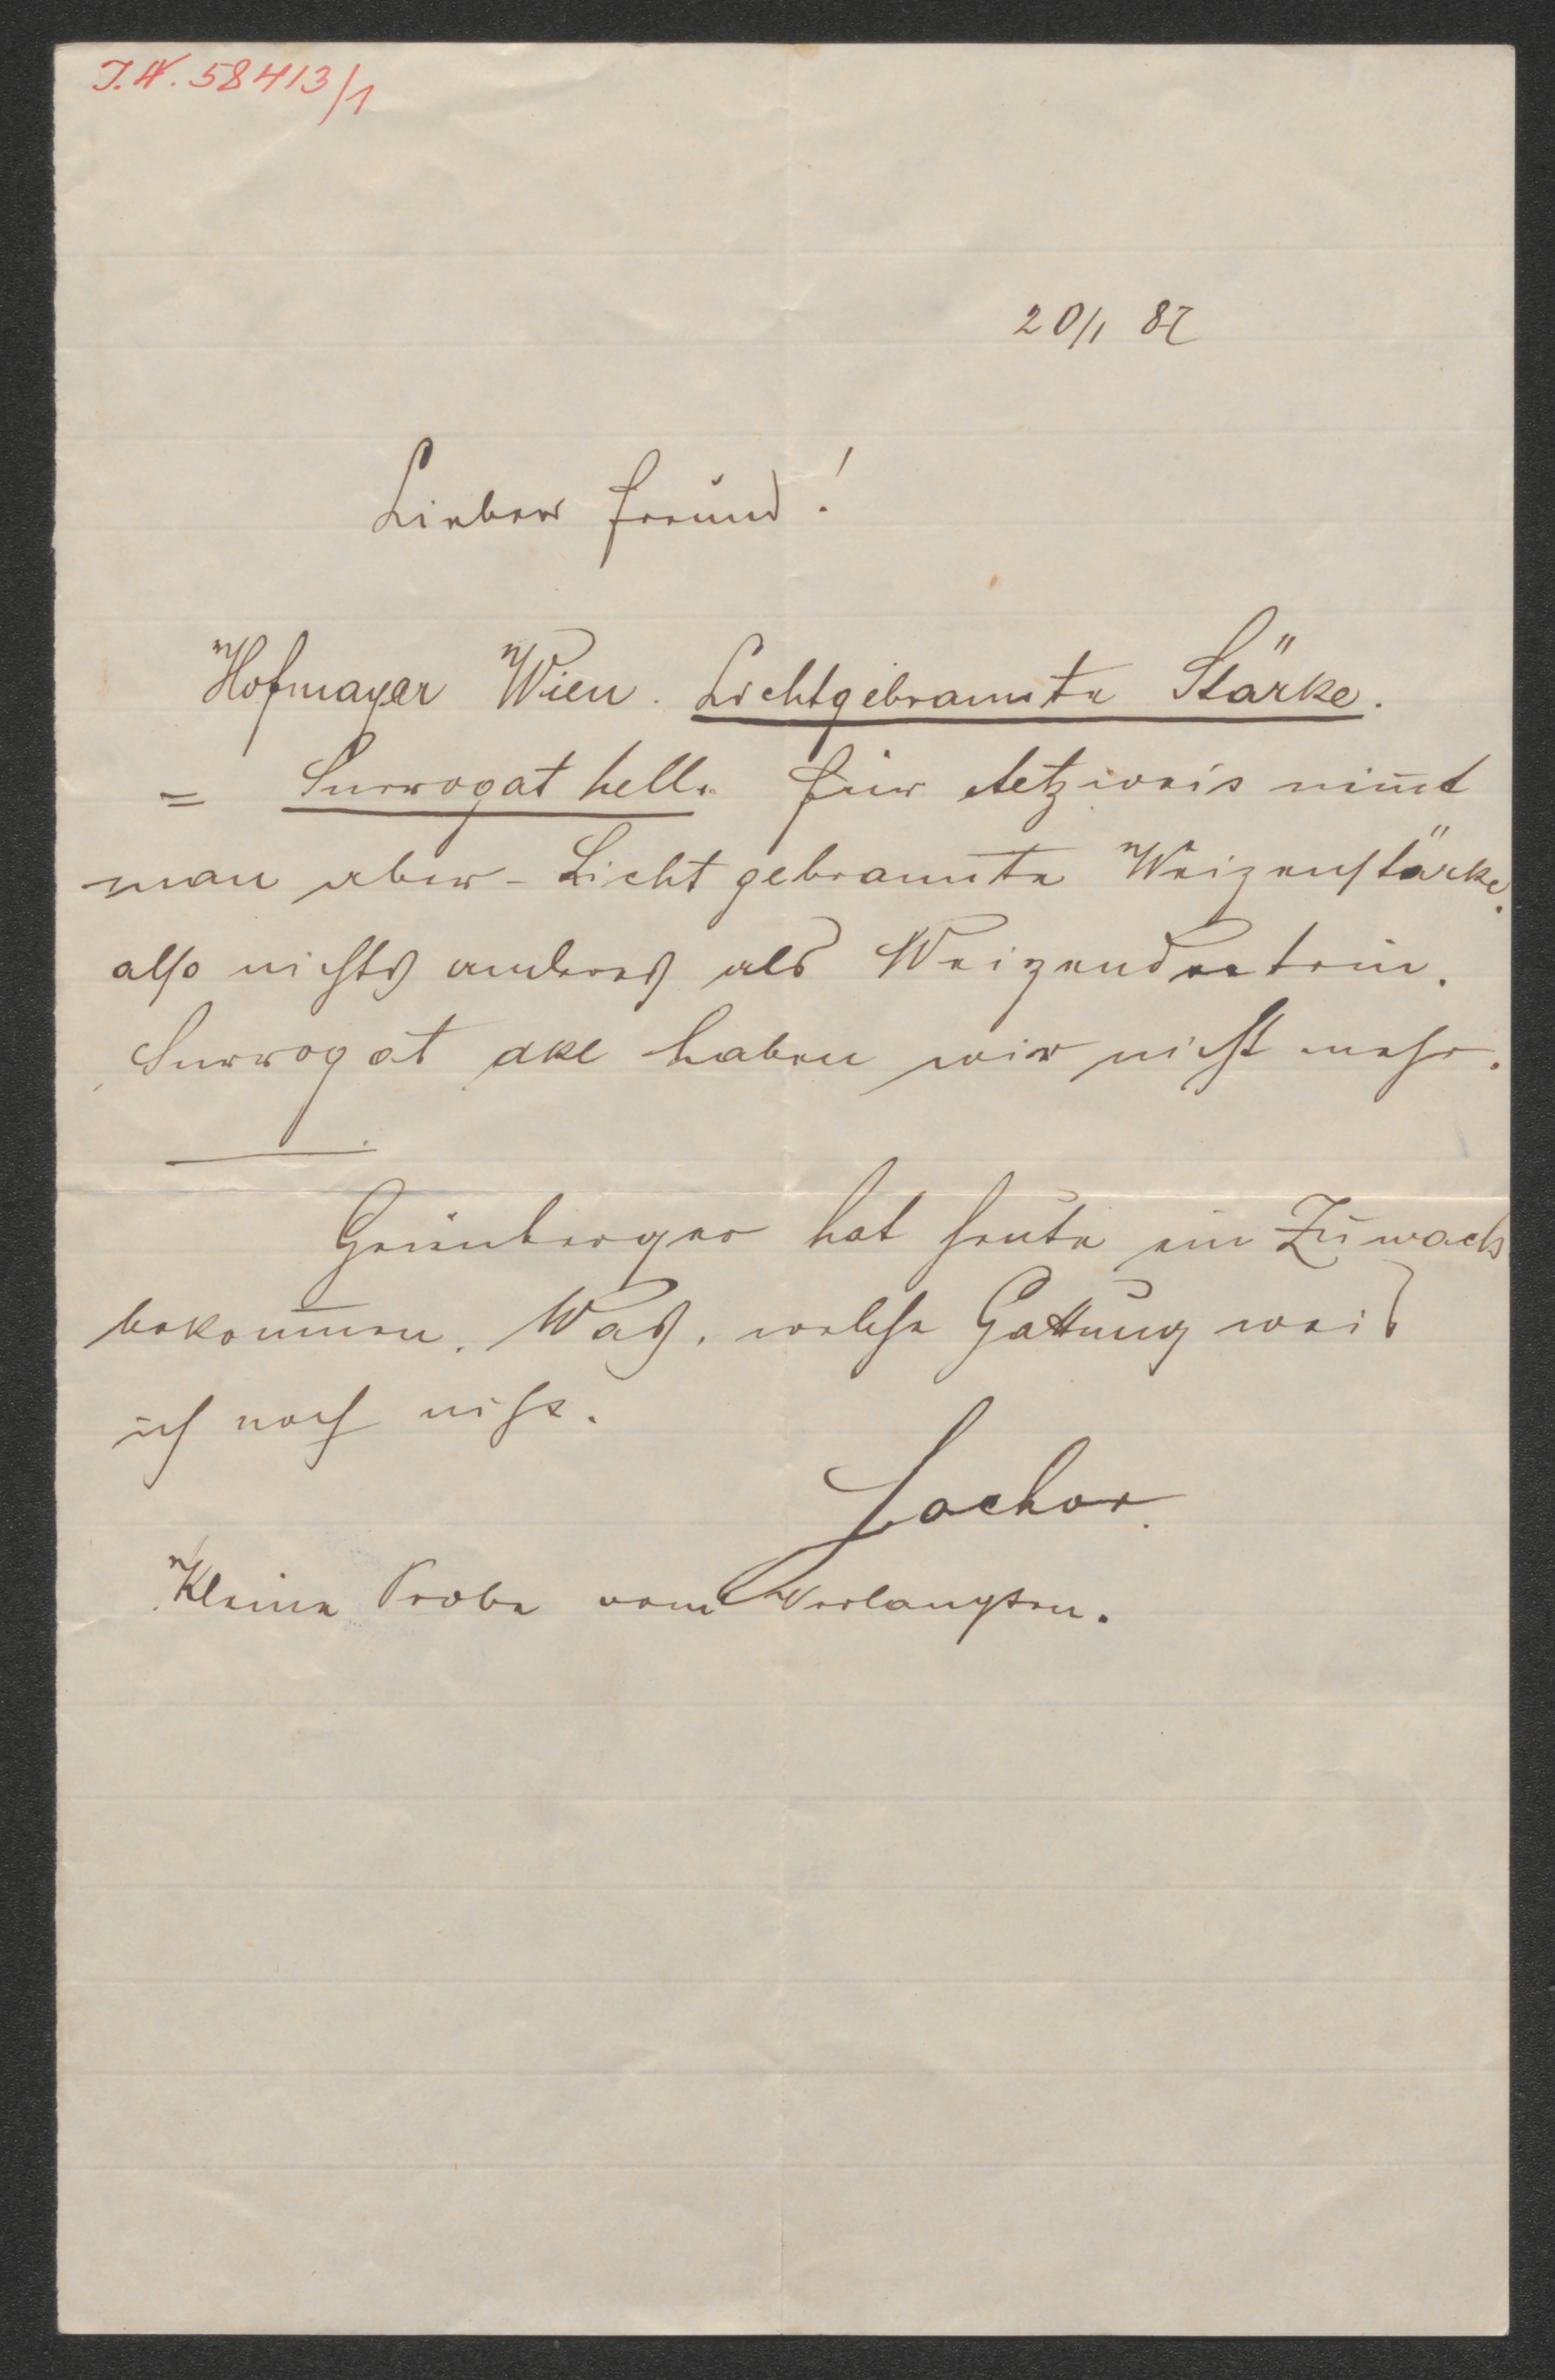 I.N. 58413/1
20/1 87
Lieber Freund!
Hofmayer Wien. Lichtgebrannte Stärke.
= Surrogat hell. Für Aetzweis nim̅t
man aber - Licht gebrannte Weizenstärke.
also nichts anderes als Weizendextrin.
Surrogat dkl haben wir nicht mehr.
Grünberger hat heute ein Zuwachs
bekom̅men. Was, welche Gattung weis
ich noch nicht.
Lachor.
Kleine Probe vom Verlangten.